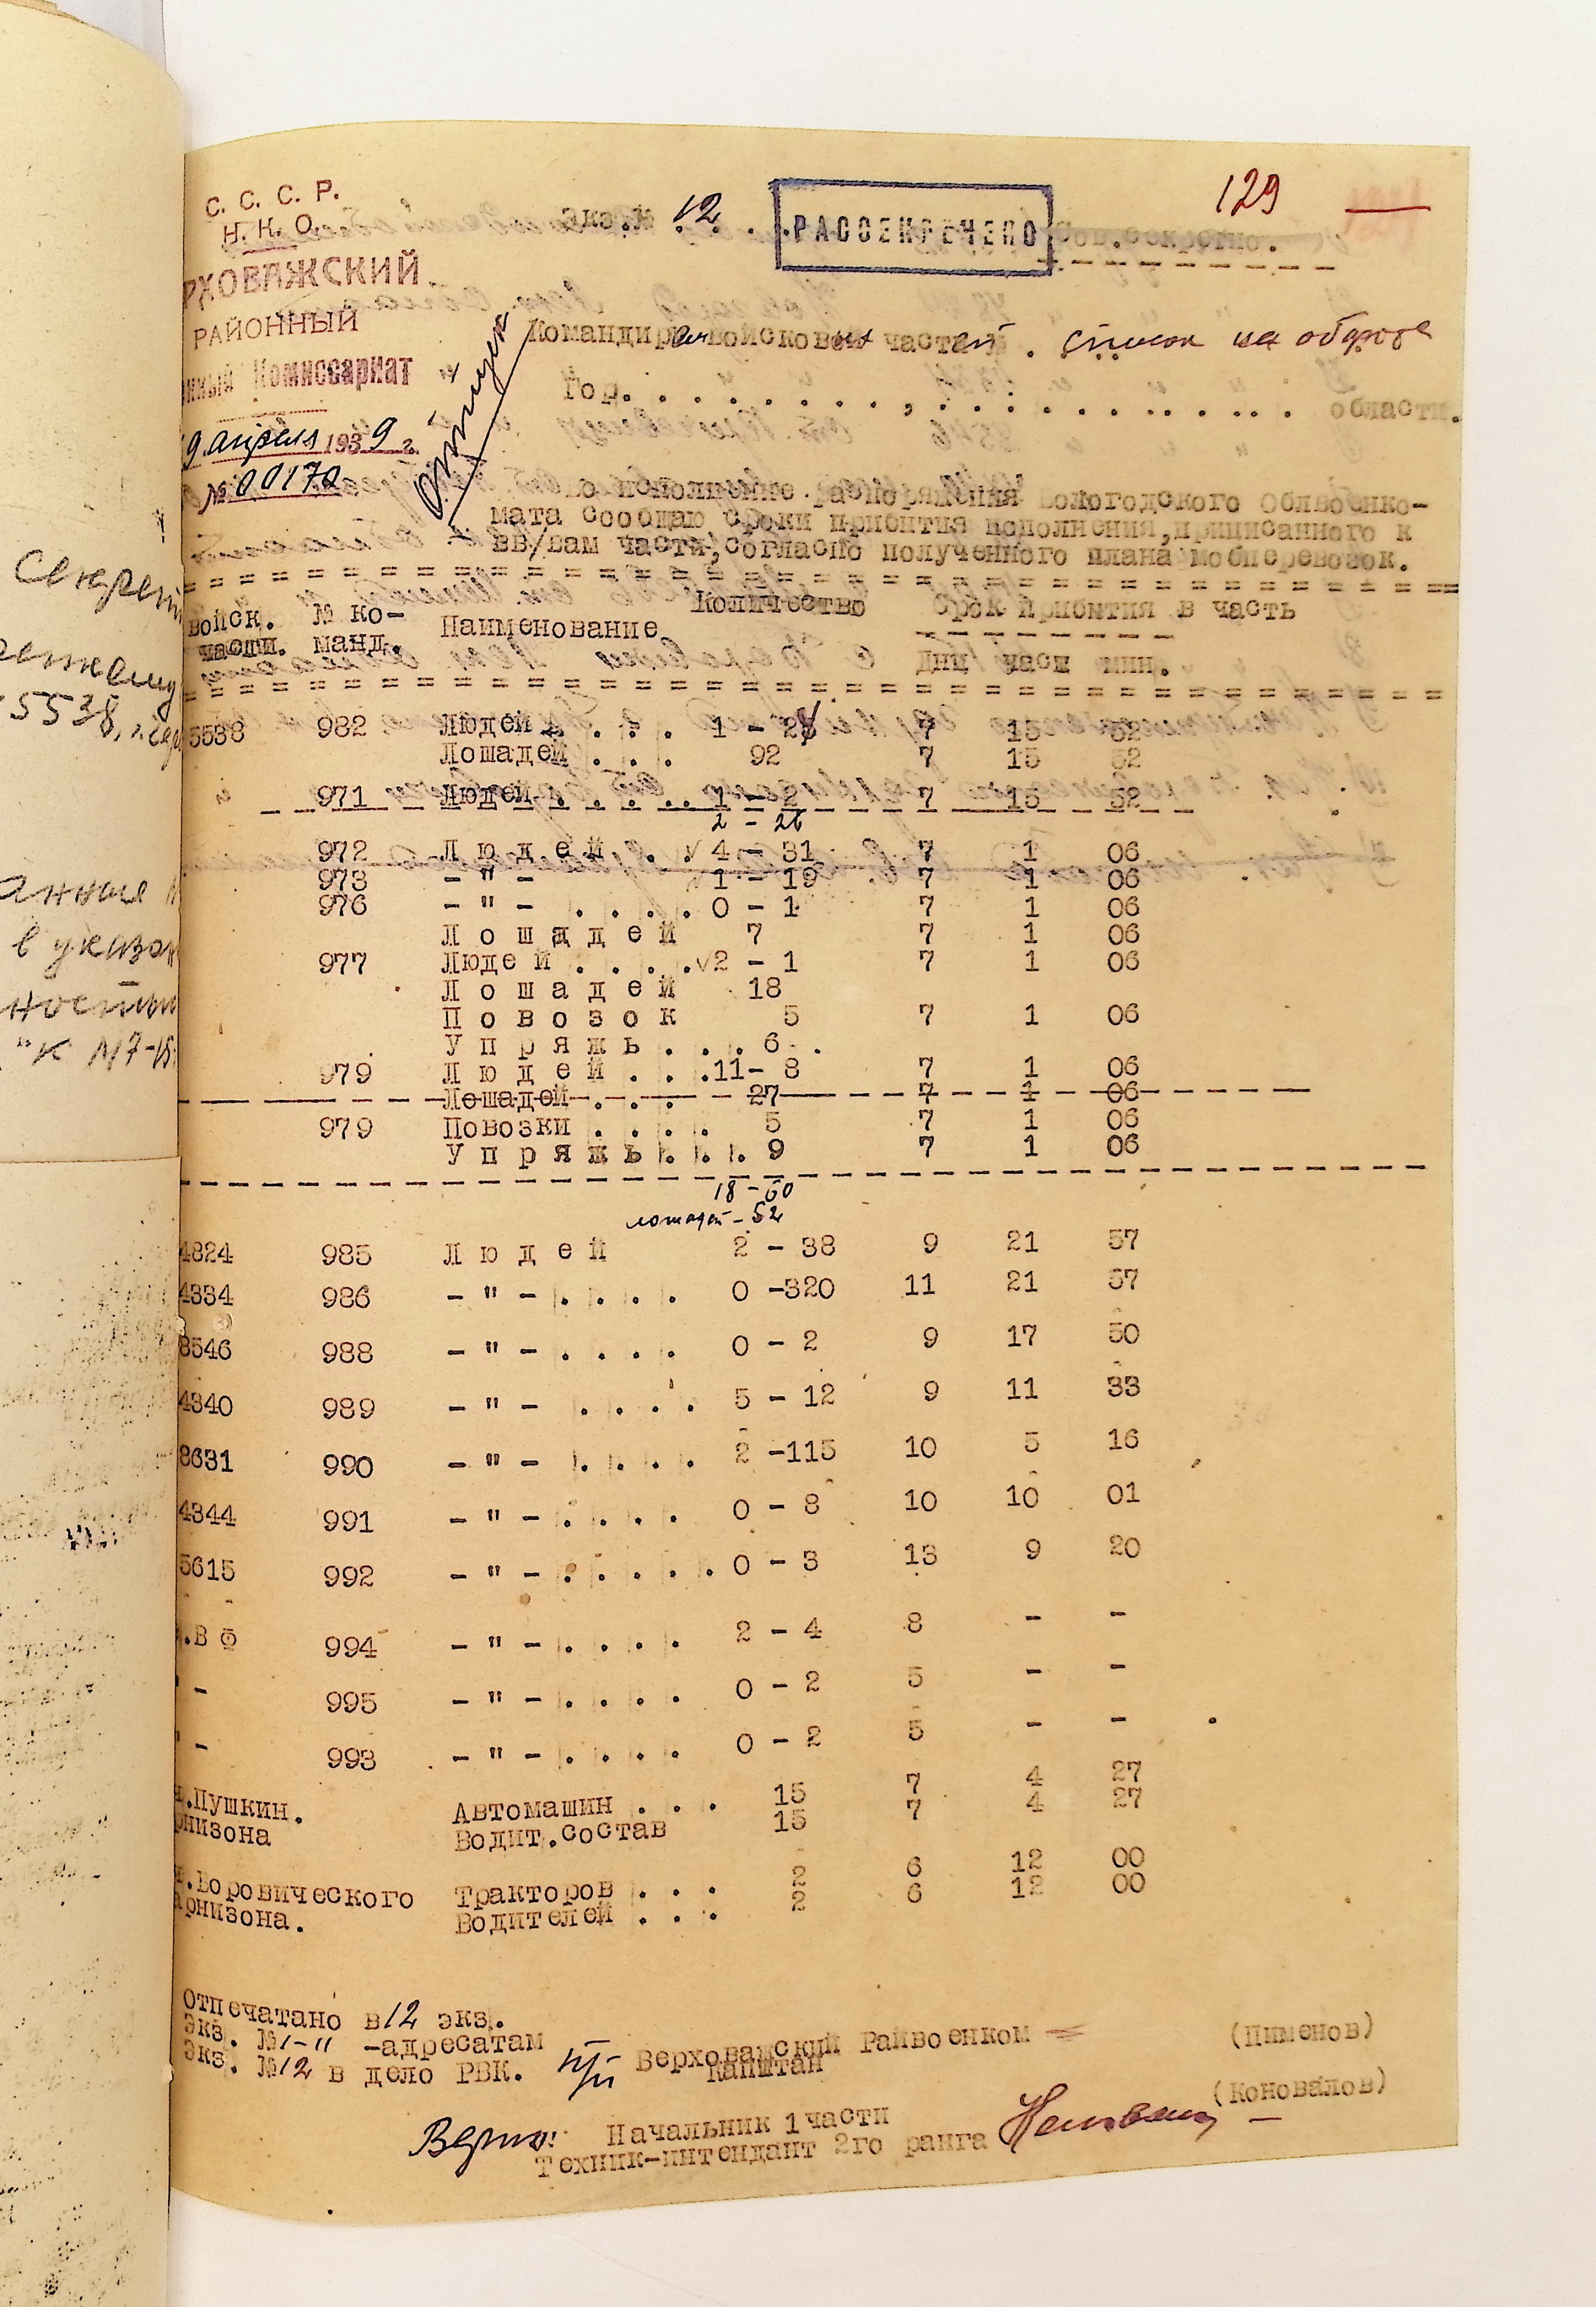 129
С. С. С. Р.
Н. К. О.
РХОВАЖСКИЙ
РАЙОННЫЙ
нный Комиссариат
9 апреля 1939 г.
№ 00170
Экз.№ 12.
РАССЕКРЕЧЕНО
Сов.секретно.
Отпуск
Командирам войсковых частей. список на обороте
Гор. . . . . . . . , . . . . . . . . . . . области.
Во исполнение распоряжения Вологодского Облвоенко-
мата сообщаю сроки прибытия пополнения, приписанного к
ВВ/Вам части, согласно полученного плана мобперевозок.
Войск. № ко- Наименование Количество Срок прибытия в часть
части. манд. Дни часы мин.
5538 982 Людей . . . . 1 - 24 7 15 52
Лошадей . . . 92 7 15 52
971 Людей. . . . . 1 - 2 7 15 52
2 - 26
972 Людей . . √ 4 - 31 7 1 06
973 - " - √ 1 - 19 7 1 06
976 - " - . . . . 0 - 1 7 1 06
Лошадей 7 7 1 06
977 Людей . . . . √2 - 1 7 1 06
Лошадей 18
Повозок 5 7 1 06
Упряжь . . . 6 .
979 Людей . . .11- 8 7 1 06
Лошадей . . . 27 7 1 06
979 Повозки . . . . 5 7 1 06
Упряжь. . . 9 7 1 06
18 - 60
лошадей - 52
4824 985 Людей 2 - 38 9 21 57
4334 986 - " - . . . . 0 -320 11 21 57
8546 988 - " - . . . . 0 - 2 9 17 50
4340 989 - " - . . . . 5 - 12 9 11 33
8631 990 - " - . . . . 2 -115 10 5 16
4344 991 - " - . . . . 0 - 8 10 10 01
5615 992 - " - . . . . . 0 - 3 13 9 20
.В Ф 994 - " - . . . . 2 - 4 8 - -
" - 995 - " - . . . . 0 - 2 5 - -
" - 993 - " - . . . . 0 - 2 5 - -
.Пушкин. Автомашин . . . 15 7 4 27
рнизона Водит.состав 15 7 4 27
.Боровического Тракторов . . . 2 6 12 00
арнизона. Водителей . . . 2 6 12 00
Отпечатано в 12 экз.
Экз. №1-11 -адресатам
Экз. №12 в дело РВК.
п/п Верховажский Райвоенком
капитан (Пименов)
Верно: Начальник 1 части
Техник-интендант 2го ранга (Коновалов)
Секретн
5538,
в указан
"К М7-18